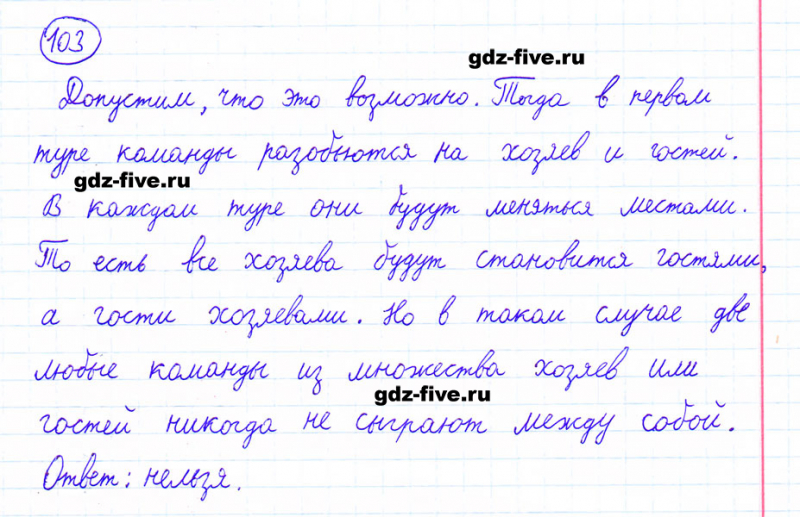 103
gdz-five.ru
Допустим, что это возможно. Тогда в первом
туре команды разобьются на хозяев и гостей.
gdz-five.ru
В каждом туре они будут меняться местами.
То есть все хозяева будут становится гостями,
а гости хозяевами. Но в таком случае две
любые команды из множества хозяев или
gdz-five.ru
гостей никогда не сыграют между собой.
Ответ: нельзя.